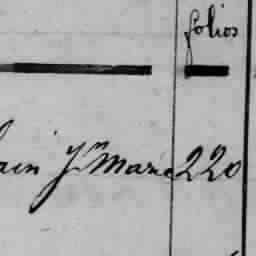 folios
ain Jn Marie 220